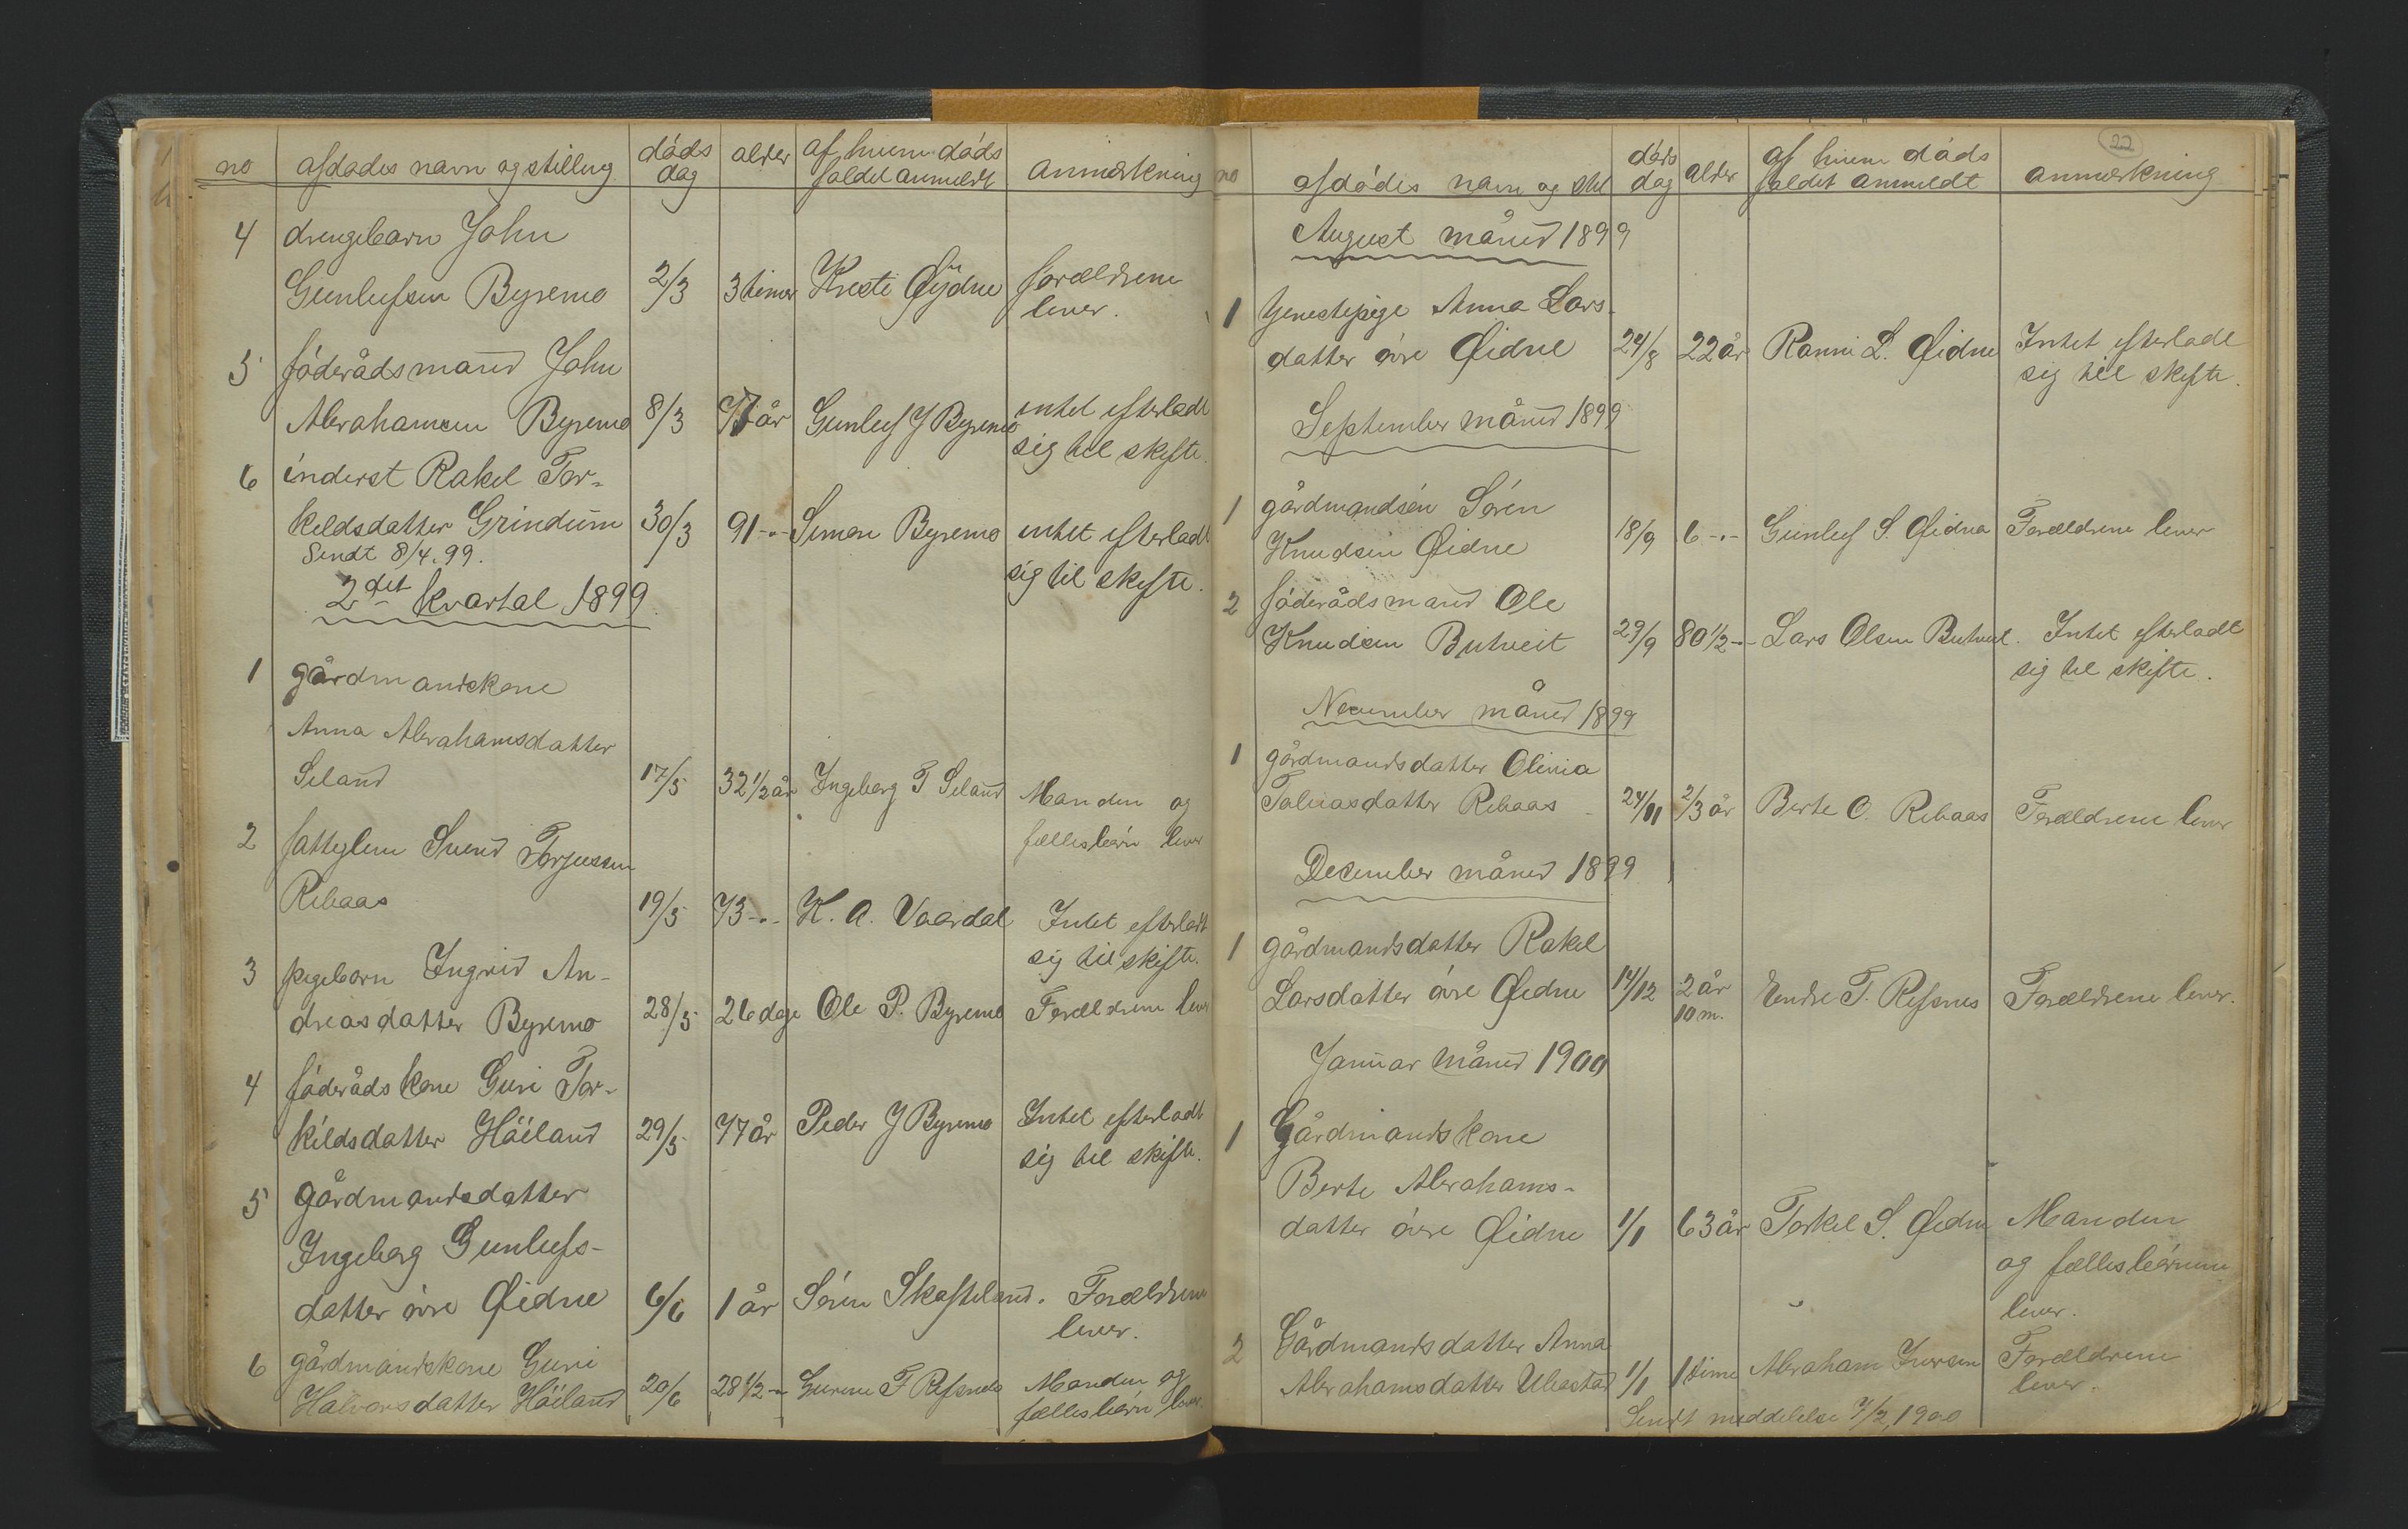 no afdødes navn og stilling døds dag alder af hvem døds faldet anmeldt anmærkning
4 drengebarn John
Gunlefsen Byremo 2/3 3 timer Kreste Øydne forældrene
lever.
5 føderådsmand John
Abrahamsen Byremo 8/3 77 år Gunlef J Byremo intet efterladt
sig til skifte.
6 inderst Rakel Tor-
keldsdatter Grindum 30/3 91 -"- Simon Byremo intet efterladt
sig til skifte.
Sendt 8/4. 99.
2det kvartal 1899
1 gårdmandskone
Anna Abrahamsdatter
Seland 17/5 32 1/2 år Ingeborg T Seland Manden og
fællesbørn lever
2 fattiglem Svend Torjussen
Ribaas 19/5 73 -"- K. A. Vaardal Intet efterladt
sig til skifte.
3 pigebarn Ingrid An-
dreasdatter Byremo 28/5 26 dage Ole P. Byremo Forældrene lever
4 føderådskone Guri Tor-
kildsdatter Høiland 29/5 77 år Peder J Byremo Intet efterladt
sig til skifte.
5 gårdmandsdatter
Ingeborg Gunlefs-
datter øvre Øidne 6/6 1 år Søren Skafteland. Forældrene
lever.
6 gårdmandskone Guri
Halvorsdatter Høiland 20/6 28 1/2 -"- Gurine F Refsnes Manden og
fællesbørn lever.
22
no afdødes navn og stil døds dag alder af hvem døds faldet anmeldt anmærkning
August måned 1899
1 tjenestepige Anna Lars-
datter øvre Øidne 24/8 22 år Ranni L. Øidne Intet efterladt
sig til skifte.
September måned 1899
1 gårdmandsøn Søren
Knudsen Øidne 18/9 6 -"- Gunlef S. Øidna Forældrene lever
2 føderådsmand Ole
Knudsen Butveit 29/9 80 1/2 -"- Lars Olsen Butveit. Intet efterladt
sig til skifte.
November måned 1899
1 gårdmandsdatter Olivia
Tobiasdatter Ribaas 24/11 2/3 år Berte O. Ribaas Forældrene lever
December måned 1899
1 gårdmandsdatter Rakel
Larsdatter øvre Øidne 14/12 2 år Endre T. Refsnes Forældrene lever.
10 m.
Januar måned 1900
1 Gårdmandskone
Berte Abrahams-
datter øvre Øidne 1/1 63 år Torkel S. Øidne Manden
og fællesbørnene
lever.
2 Gårdmandsdatter Anna
Abrahamsdatter Ubostad 1/1 1 time Abraham Iversen Forældrene
lever.
Sendt meddelelse 7/2, 1900